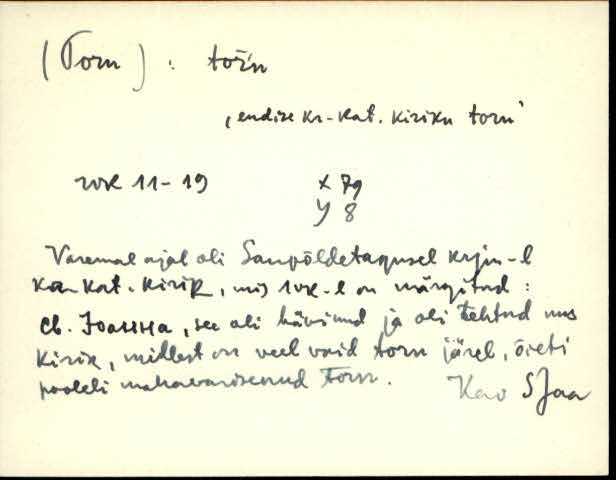 (Torn) : torn
‚endise Kr-Kat. kiriku torn’
1vk 11-19 x 79
y 8
Varemal ajal oli Sanpõldetagusel krjm-l
ka Kat. kirik, mis 1vk-l on märgitud :
св. Іоанна, see oli hävinud ja oli tehtud uus
kirik, millest on veel vaid torn järel, õieti
pooleli mahavarisenud torn. Kav SJaa